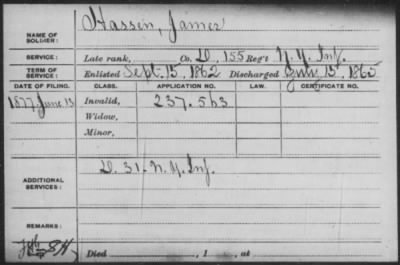 NAME OF SOLDIER: Hassen, James
SERVICE: Late rank, Co. D, 155 Reg't N.Y. Inf.
TERM OF SERVICE: Enlisted Sept. 15, 1862 Discharged July 15, 1865
DATE OF FILING. CLASS. APPLICATION NO. LAW. CERTIFICATE NO.
1877, June 13 Invalid, 237.563
Widow,
Minor,
ADDITIONAL SERVICES: D. 31. N.Y. Inf.
REMARKS:
Died , 1 , at